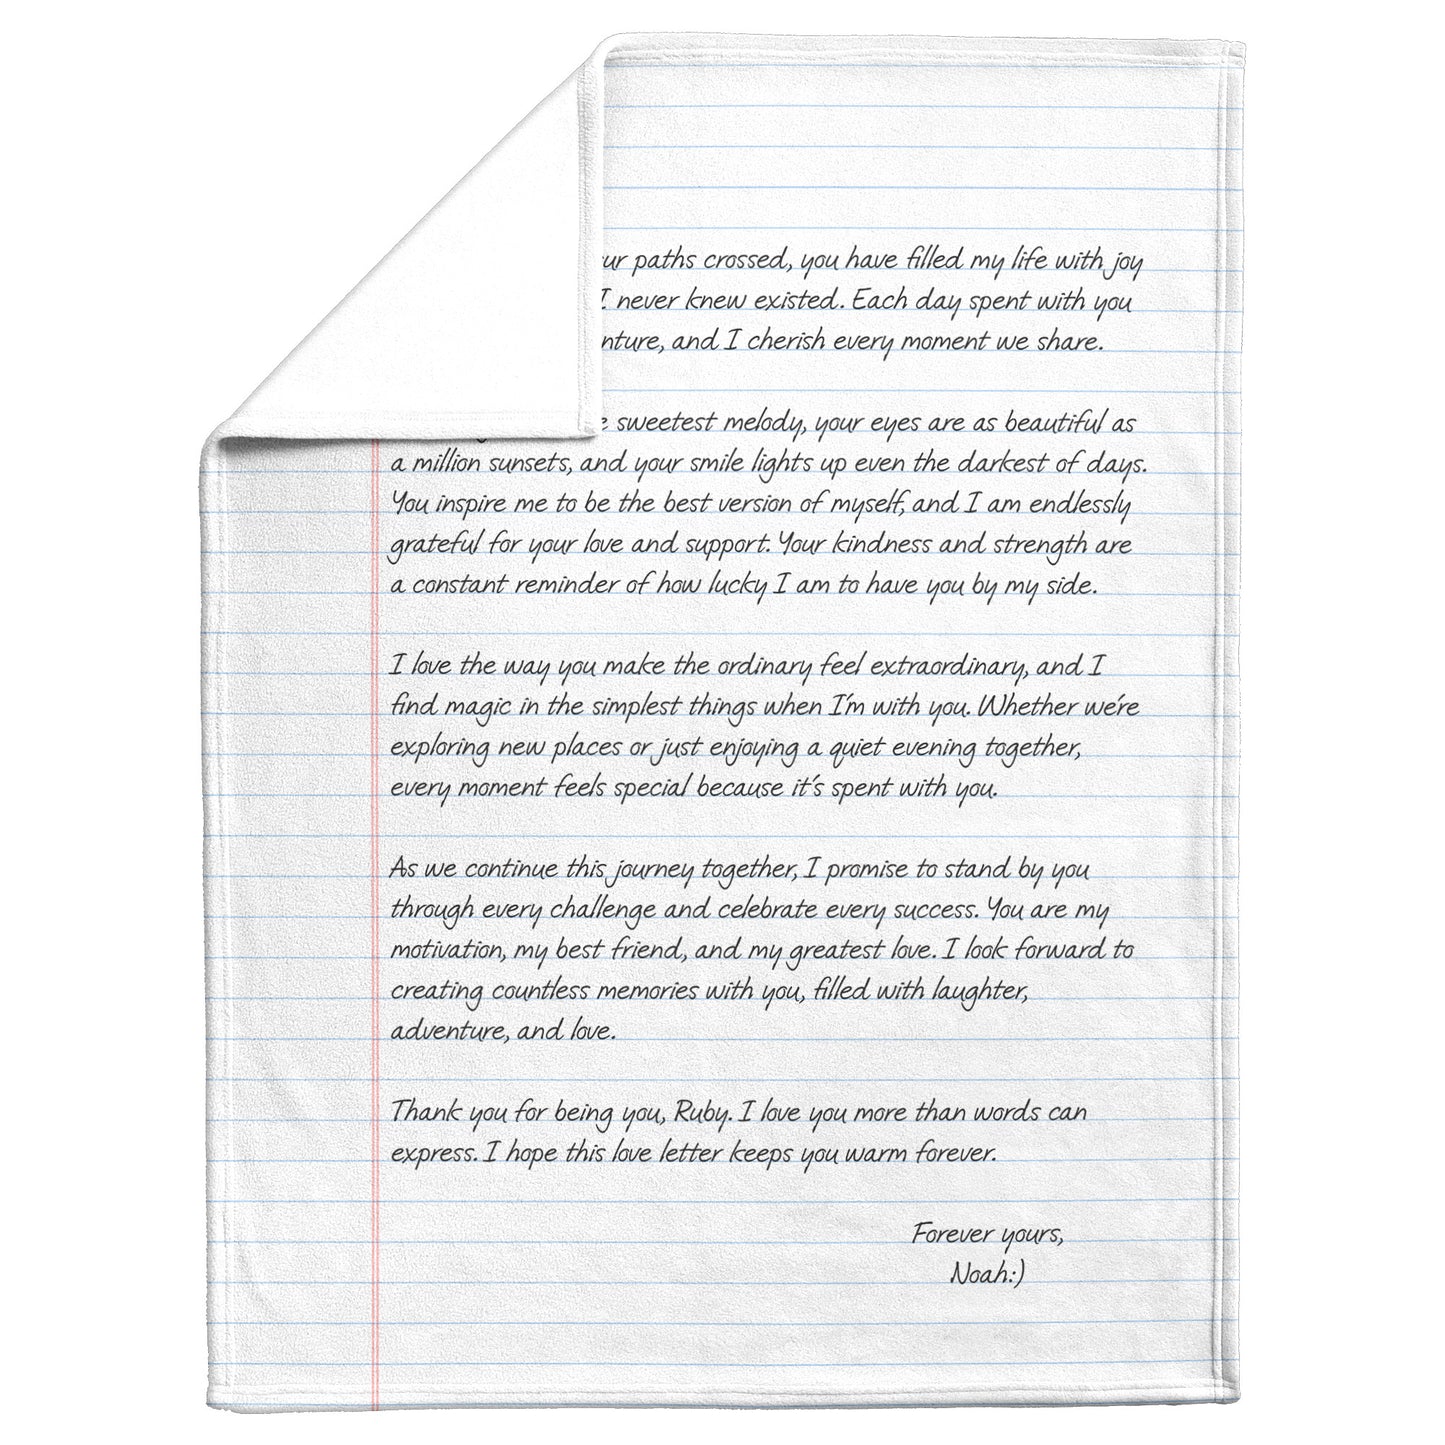 paths crossed, you have filled my life with joy
I never knew existed. Each day spent with you
and I cherish every moment we share.
sweetest melody, your eyes are as beautiful as
a million sunsets, and your smile lights up even the darkest of days.
You inspire me to be the best version of myself, and I am endlessly
grateful for your love and support. Your kindness and strength are
a constant reminder of how lucky I am to have you by my side.
I love the way you make the ordinary feel extraordinary, and I
find magic in the simplest things when I'm with you. Whether we're
exploring new places or just enjoying a quiet evening together,
every moment feels special because it's spent with you.
As we continue this journey together, I promise to stand by you
through every challenge and celebrate every success. You are my
motivation, my best friend, and my greatest love. I look forward to
creating countless memories with you, filled with laughter,
adventure, and love.
Thank you for being you, Ruby. I love you more than words can
express. I hope this love letter keeps you warm forever.
Forever yours,
Noah:)